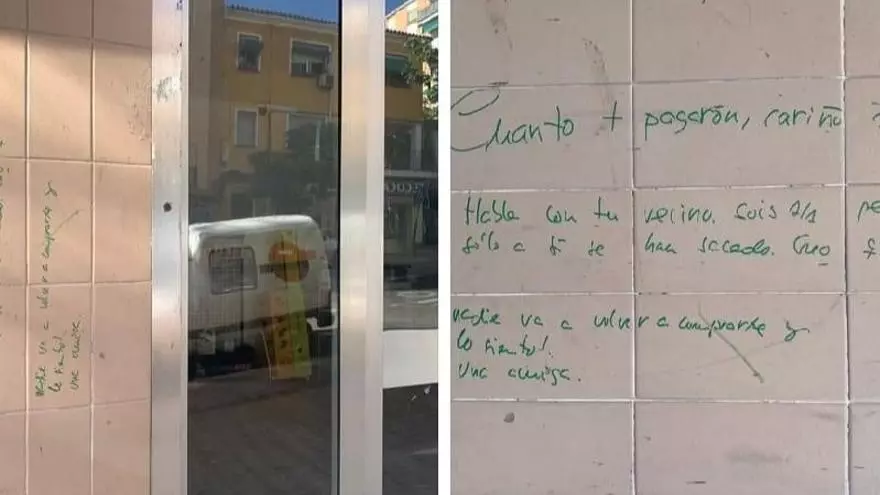 nadie va a volver a comprarte y
lo siento!
una amiga
Cuanto + pagarón, cariño
Habla con tu vecino. Sois 2/1 pe
sólo a ti te han sacado. Creo
nadie va a volver a comprarte y
lo siento!.
Una amiga.